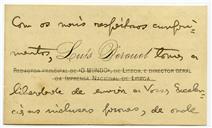 Com os mais respeitosos cumpri-
mentos, Luís Derouet toma a
REDACTOR PRINCIPAL DE «O MUNDO», DE LISBOA, E DIRECTOR GERAL
DA IMPRENSA NACIONAL DE LISBOA
liberdade de enviar a Vossa Excelen-
cia as inclusas provas, de onde